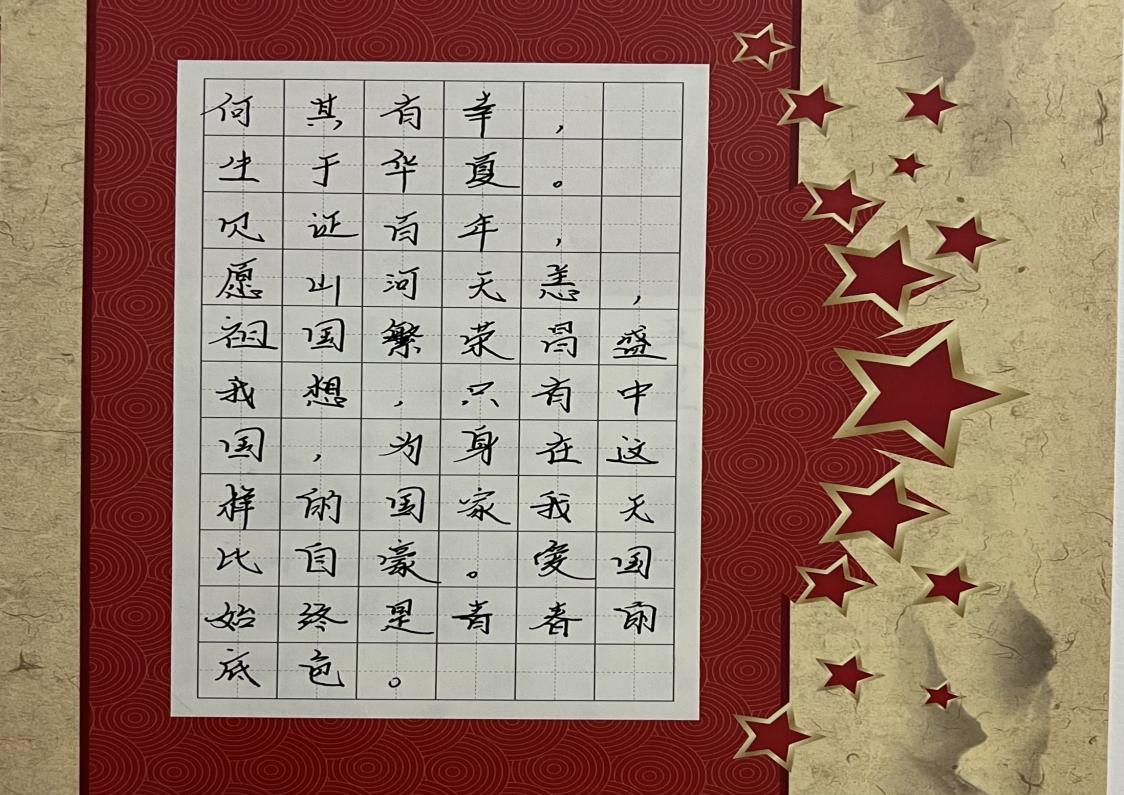 何其有幸，
生于华夏。
见证百年，
愿山河无恙，
祖国繁荣昌盛
我想，只有中
国，为身在这
样的国家我无
比自豪。爱国
始终是青春的
底色。